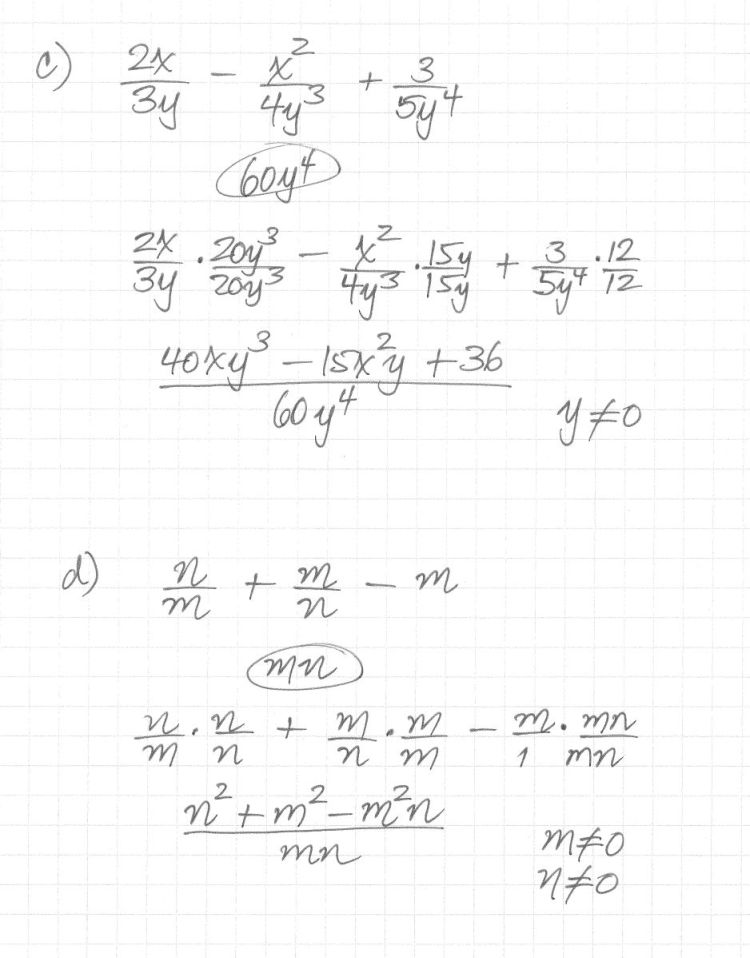 c) 2x/3y - x²/4y³ + 3/5y⁴
60y⁴
2x/3y · 20y³/20y³ - x²/4y³ · 15y/15y + 3/5y⁴ · 12/12
40xy³ - 15x²y + 36 / 60y⁴ y≠0
d) n/m + m/n - m
mn
n/m · n/n + m/n · m/m - m/1 · mn/mn
n² + m² - m²n / mn m≠0
n≠0